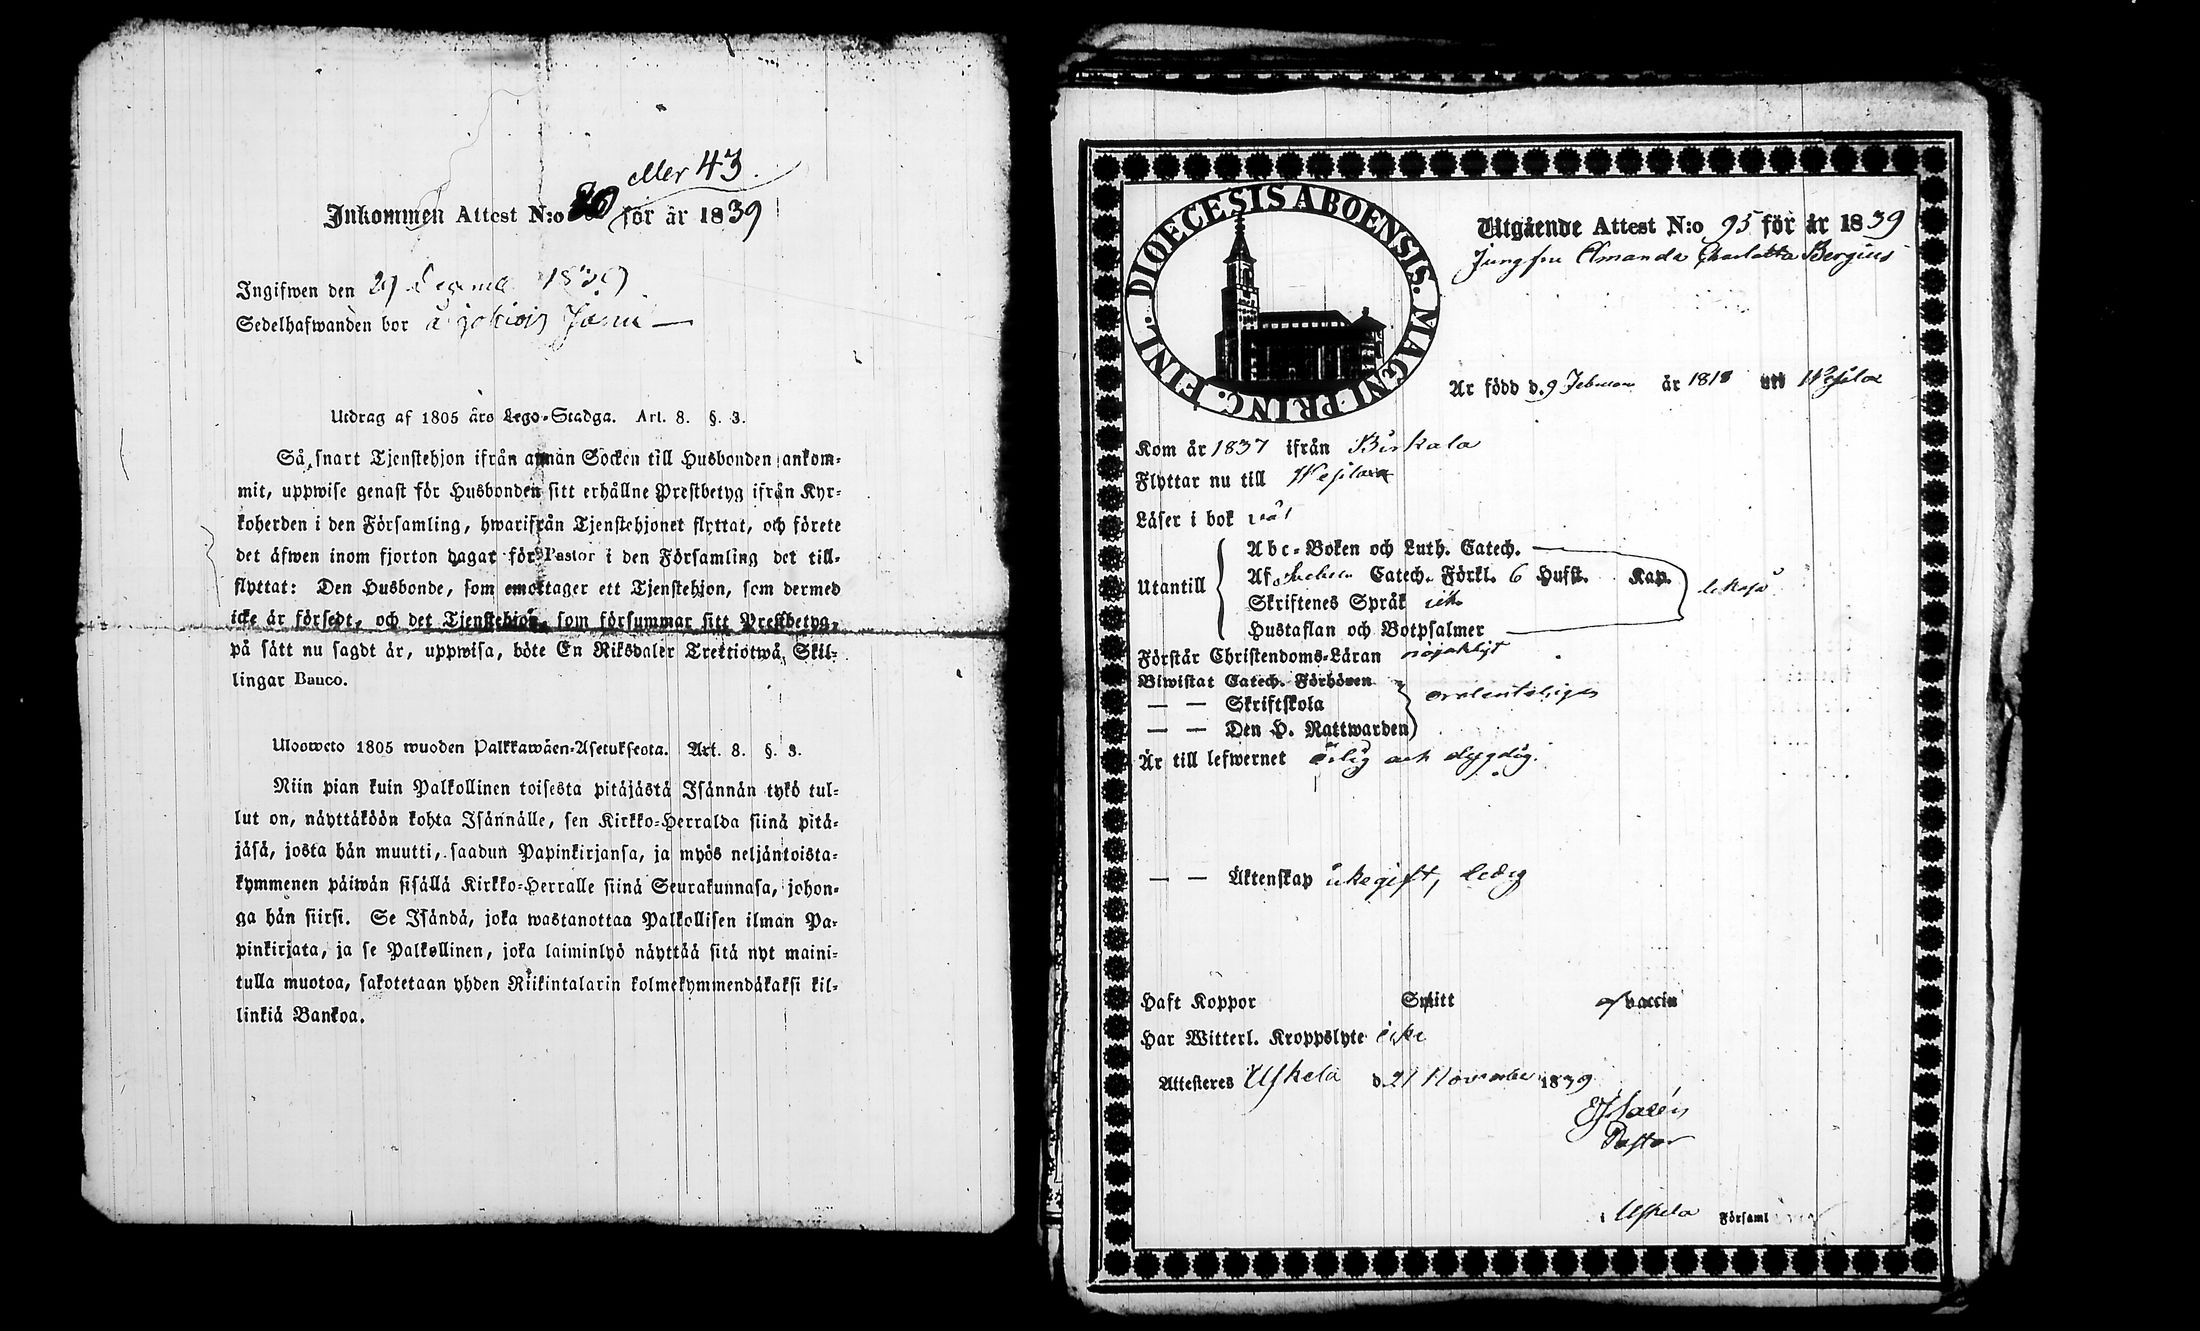 eller 43
Inkommen Attest N:o för år 1839
Ingifwen den 29 1839
Sedelhafwanden bor å
Utdrag af 1805 års Lego-Stadga. Art. 8. §. 3.
Så snart Tjenstehjon ifrån annan Socken till Husbonden ankom-
mit, uppwise genast för Husbonden sitt erhållne Prestbetyg ifrån Kyr-
koherden i den Församling, hwarifrån Tjenstehjonet flyttat, och förete
det äfwen inom fjorton dagar för Pastor i den Församling det till-
flyttat: Den Husbonde, som emottager ett Tjenstehjon, som dermed
icke är försedt, och det Tjenstehjon, som försummar sitt Prestbetyg,
på sätt nu sagdt är, uppwisa, böte En Riksdaler Trettiotwå Skil-
lingar Banco.
Ulosweto 1805 wuoden Palkkawäen-Asetuksesta. Art. 8. §. 3.
Niin pian kuin Palkollinen toisesta pitäjästä Isännän tykö tul-
lut on, näyttäköön kohta Isännälle, sen Kirkko-Herralda siinä pitä-
jäsä, josta hän muutti, saadun Papinkirjansa, ja myös neljäntoista-
kymmenen päiwän sisällä Kirkko-Herralle siinä Seurakunnasa, johon-
ga hän siirsi. Se Isändä, joka wastanottaa Palkollisen ilman Pa-
pinkirjata, ja se Palkollinen, joka laiminlyö näyttää sitä nyt maini-
tulla muotoa, sakotetaan yhden Riikintalarin kolmekymmendäkaksi kil-
linkiä Bankoa.
DIOECESIS ABOENSIS. MAGNI PRINC. FINL.
Utgående Attest N:o 95 för år 1839
Jungfru Amanda Charlotta Bergius
Är född d. 9 Februari år 1818 uti Wesilax
Kom år 1837 ifrån Birkala
Flyttar nu till Wesilax
Läser i bok väl
Utantill
Abc-Boken och Luth. Catech.
Af Catech. Förkl. 6 Hufst. Kap.
Skriftenes Språk
Hustaflan och Botpsalmer
Förstår Christendoms-Läran nöjaktigt
Biwistat Catech. Förhören
— — Skriftskola
— — Den H. Nattwarden
ordenteligen
Är till lefwernet ärlig och dygdig.
— — Äktenskap ickegift, ledig
Haft Koppor Smitt af vaccin
Har Witterl. Kroppslyte icke
Attesteres Uskela d. 21 November 1839
Pastor
i Uskela Församl